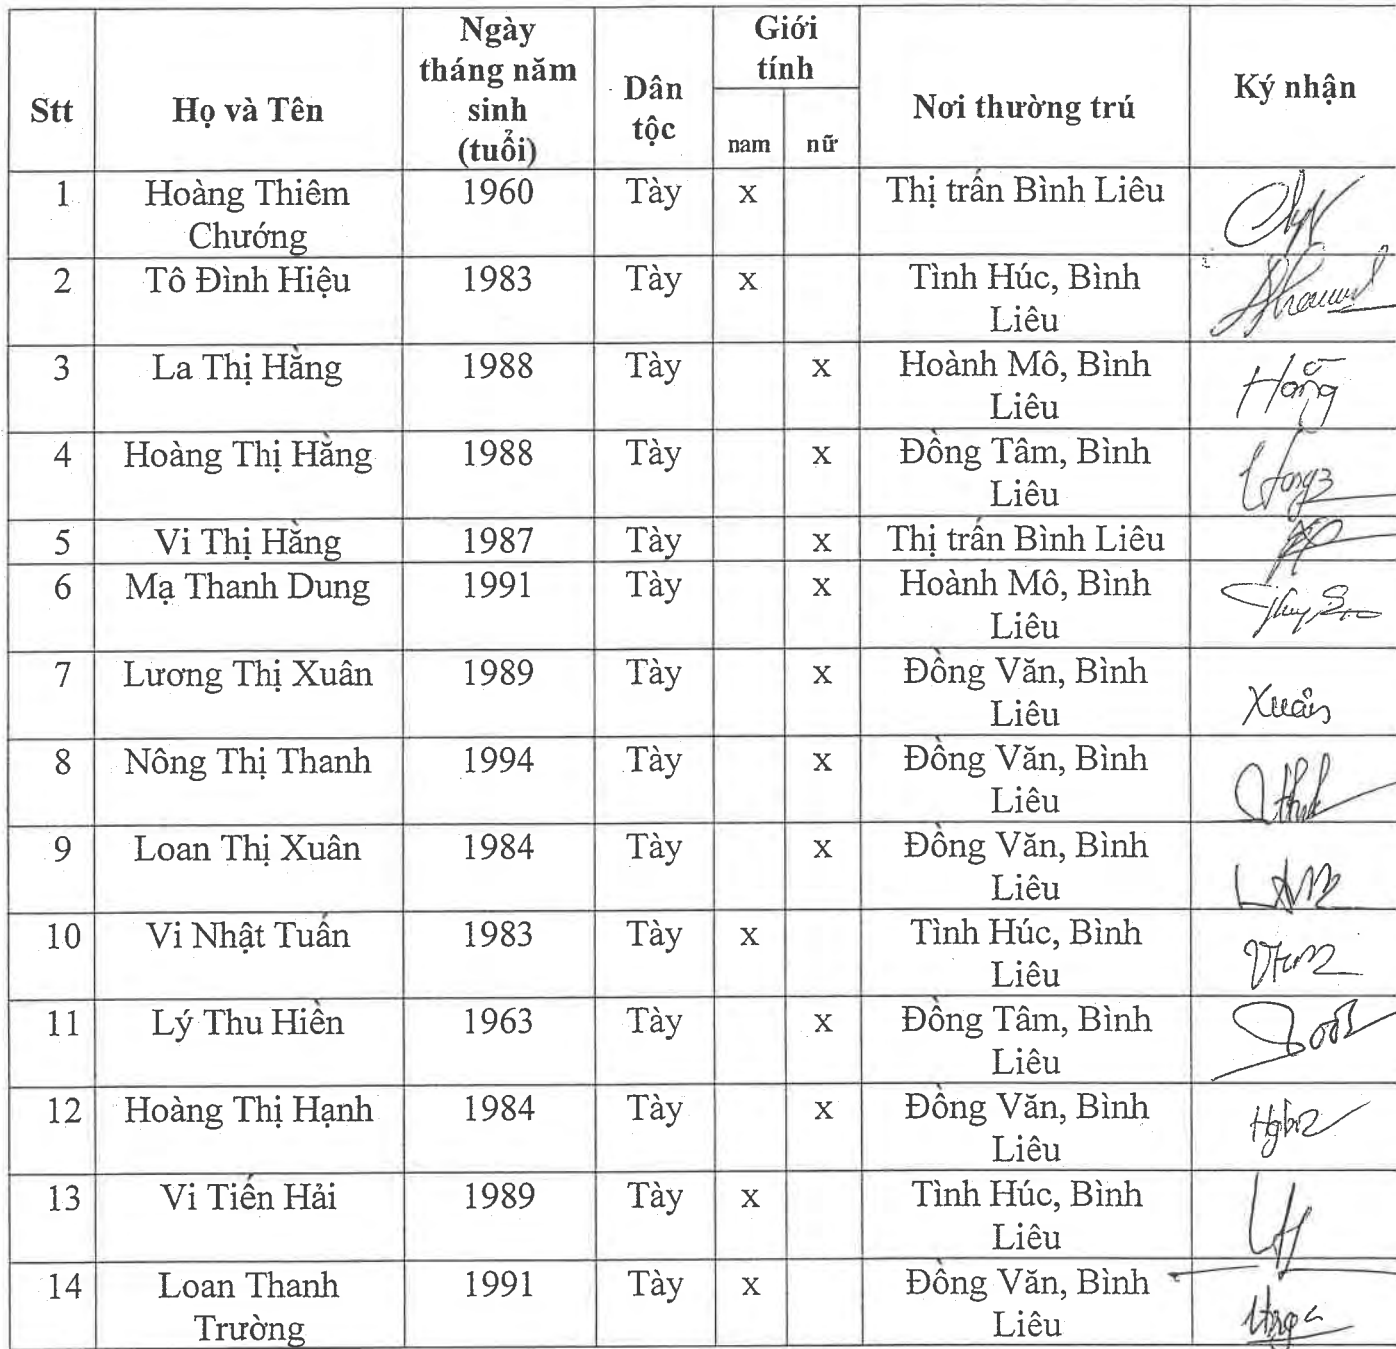 Stt Họ và Tên Ngày tháng năm sinh (tuổi) Dân tộc Giới tính Nơi thường trú Ký nhận
nam nữ
1 Hoàng Thiêm 1960 Tày x Thị trấn Bình Liêu
Chướng
2 Tô Đình Hiệu 1983 Tày x Tình Húc, Bình
Liêu
3 La Thị Hằng 1988 Tày x Hoành Mô, Bình
Liêu Hằng
4 Hoàng Thị Hằng 1988 Tày x Đồng Tâm, Bình
Liêu
5 Vi Thị Hằng 1987 Tày x Thị trấn Bình Liêu
6 Mạ Thanh Dung 1991 Tày x Hoành Mô, Bình
Liêu
7 Lương Thị Xuân 1989 Tày x Đồng Văn, Bình
Liêu Xuân
8 Nông Thị Thanh 1994 Tày x Đồng Văn, Bình
Liêu
9 Loan Thị Xuân 1984 Tày x Đồng Văn, Bình
Liêu
10 Vi Nhật Tuấn 1983 Tày x Tình Húc, Bình
Liêu
11 Lý Thu Hiền 1963 Tày x Đồng Tâm, Bình
Liêu
12 Hoàng Thị Hạnh 1984 Tày x Đồng Văn, Bình
Liêu
13 Vi Tiến Hải 1989 Tày x Tình Húc, Bình
Liêu
14 Loan Thanh 1991 Tày x Đồng Văn, Bình
Trường Liêu